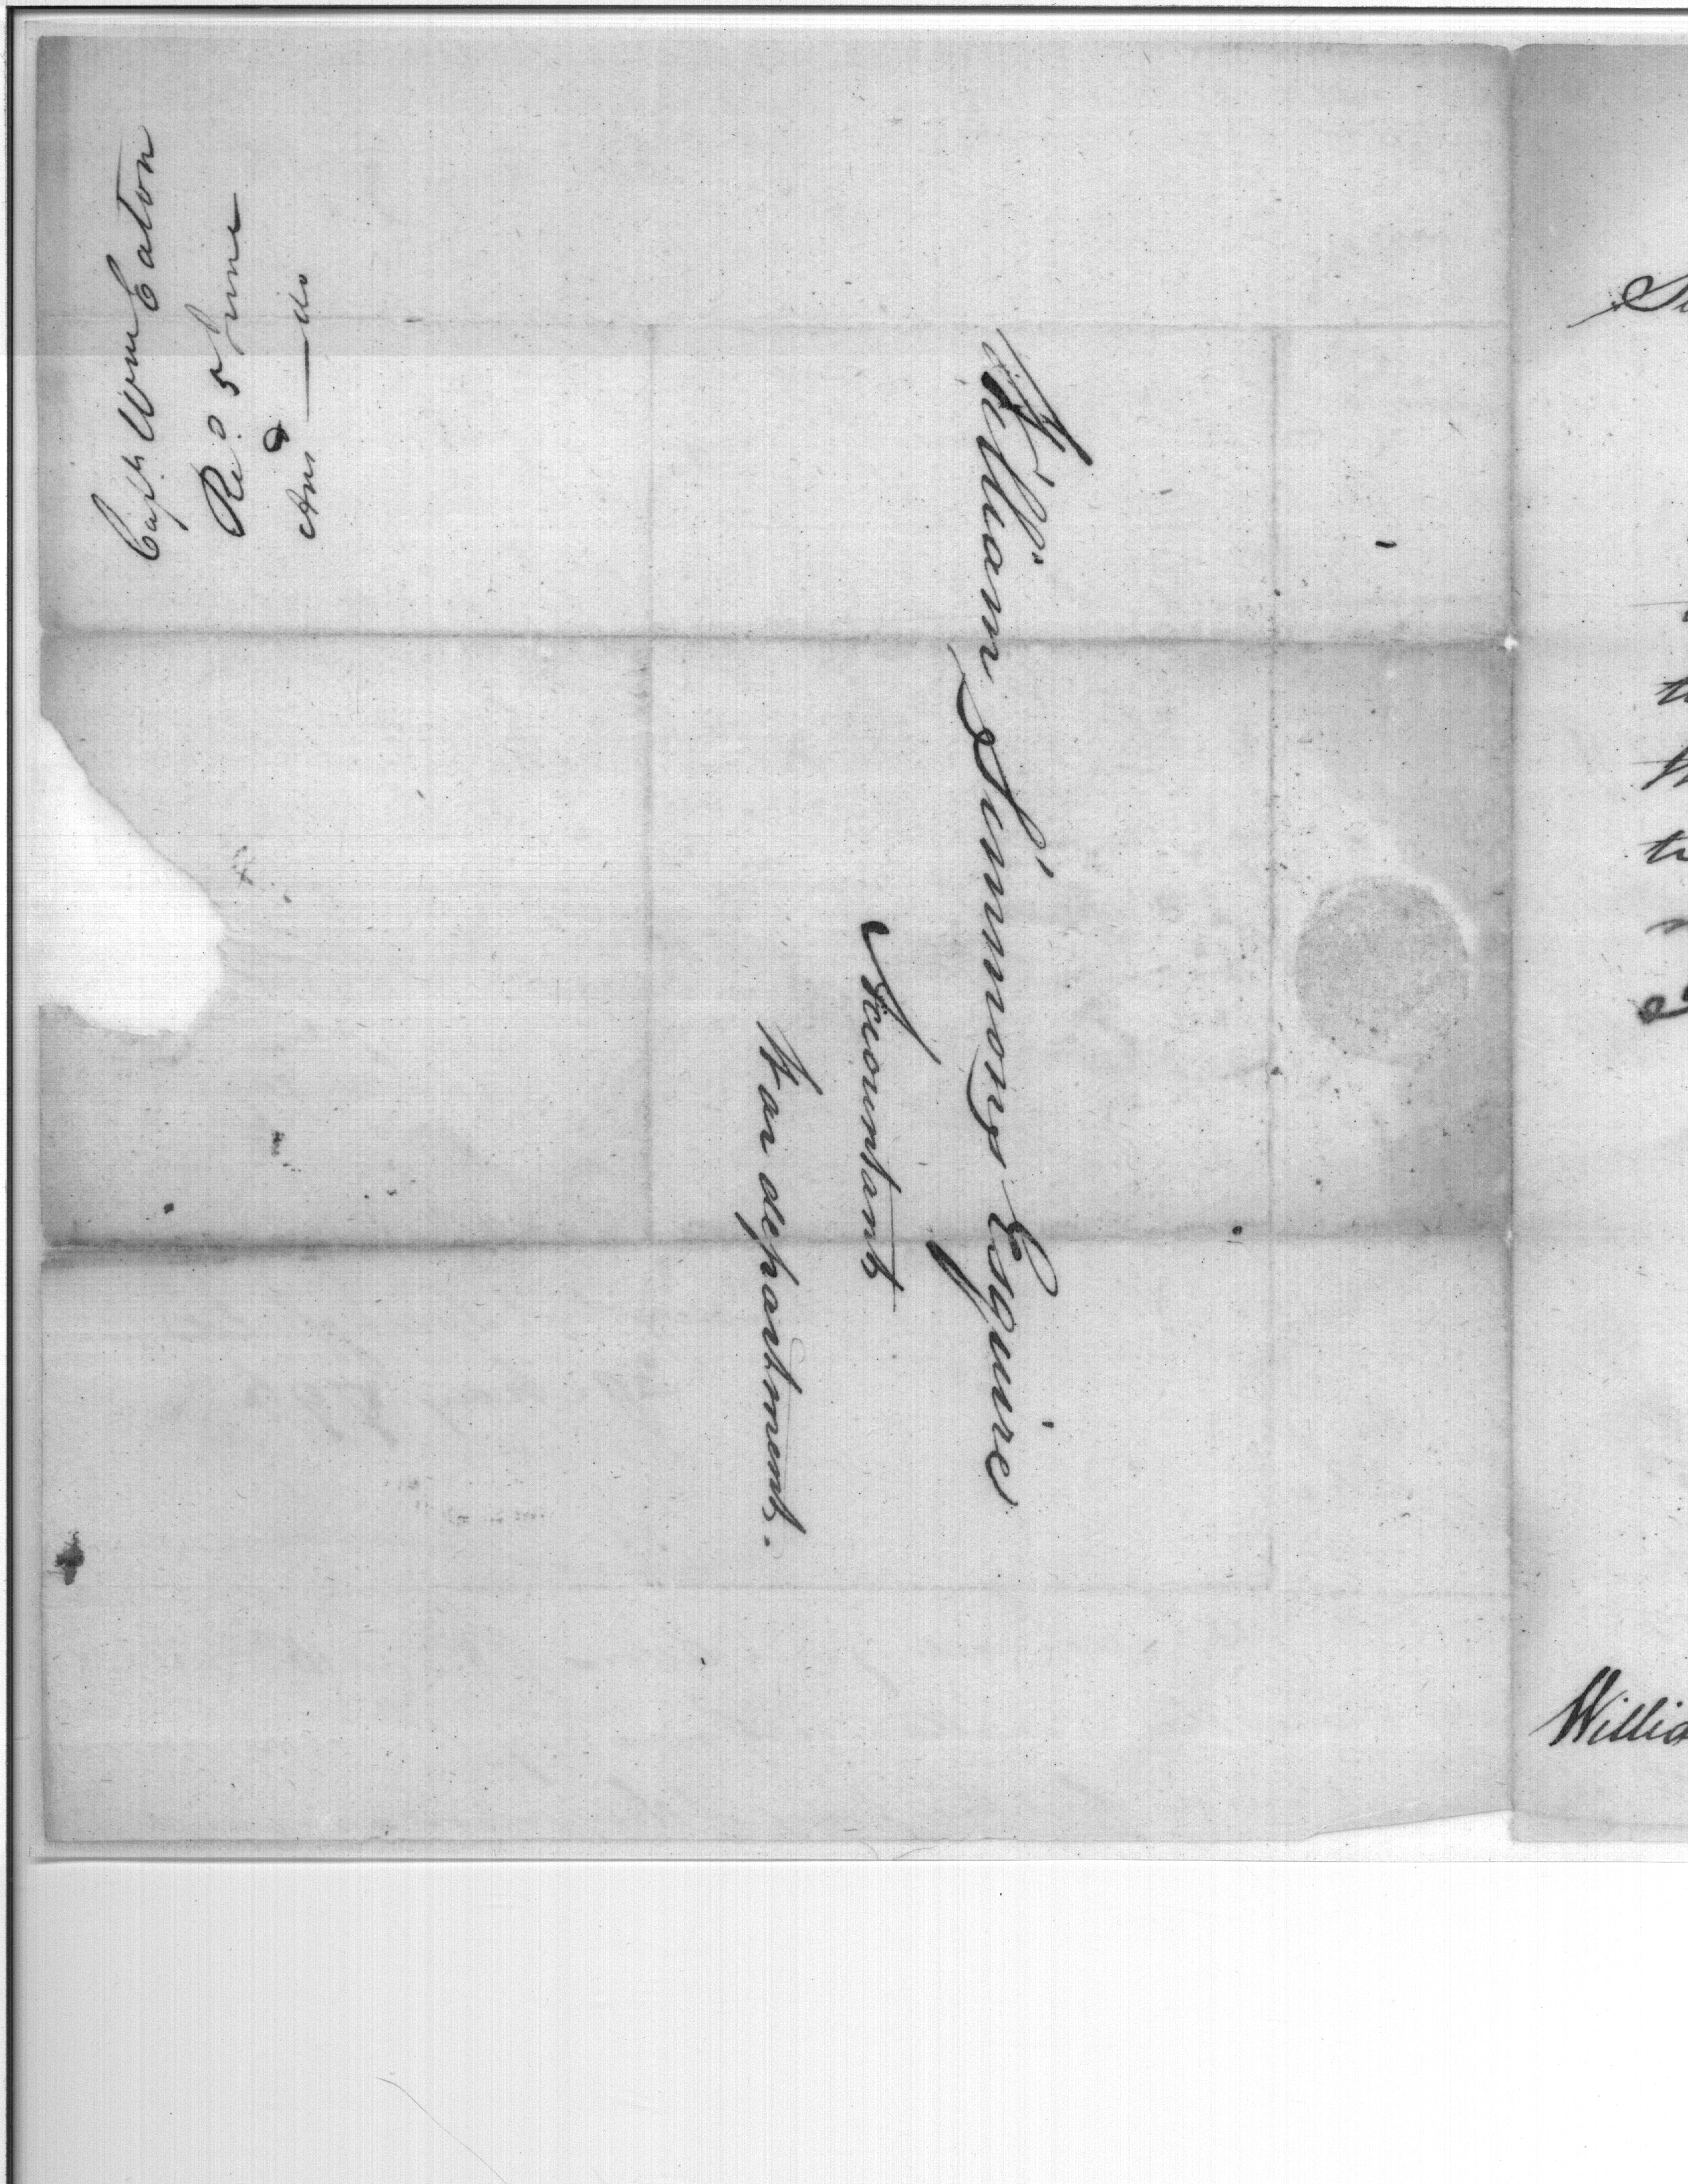 Capt. Wm Eaton
Recd 5 June
Ansd — do
William Simmons Esquire
Accountant
War department.
Willia